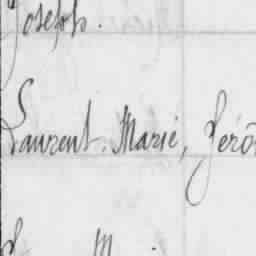 Joseph.
Laurent, Marie, Jérô